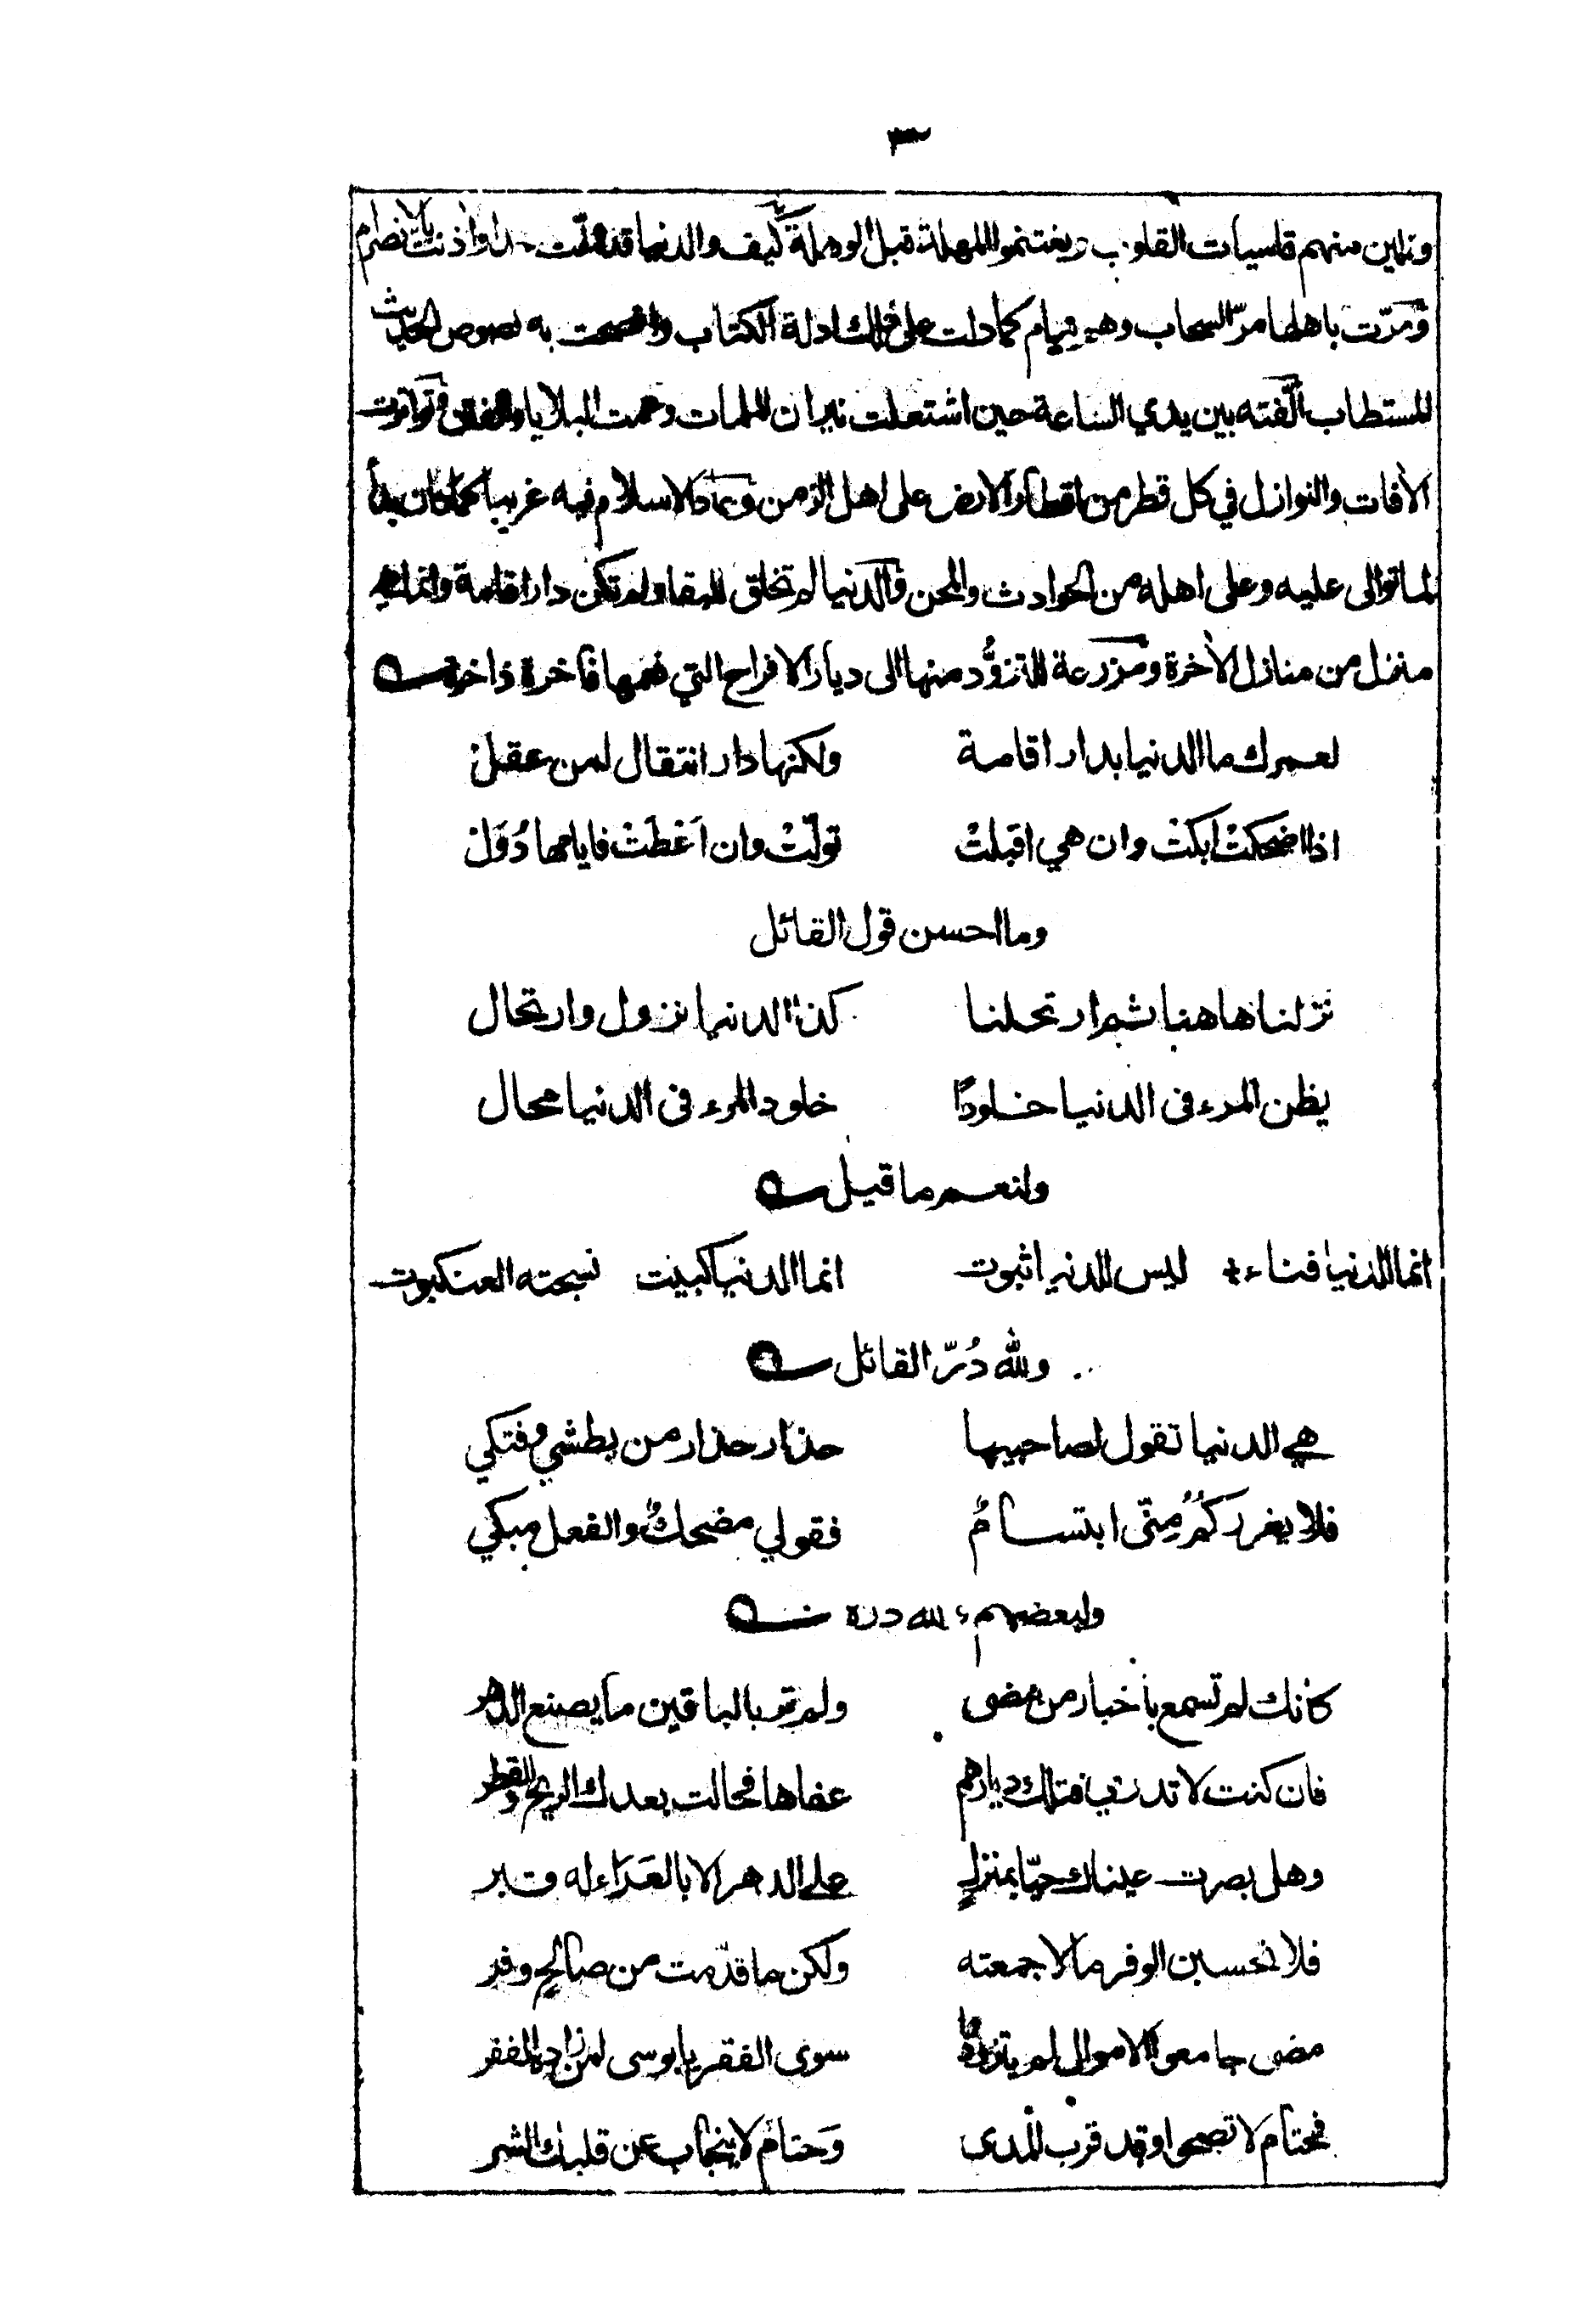 ٣
وتلين منهم قاسيات القلوب ويغتنموا المهلة قبل الوهلة كيف والدنيا قد ولّت حذاء واذنت بالانصرام
ومرّت باهلها مرّ السحاب وهم نيام كما دلت على ذلك ادلة الكتاب وافصحت به نصوص الحديث
المستطاب الّفته بين يدي الساعة حين اشتعلت نيران الملمات وعمت البلايا والفتن وتواترت
الآفات والنوازل في كل قطر من اقطار الارض على اهل الزمن وعاد الاسلام فيه غريبا كما كان بدأ
لما توالى عليه وعلى اهله من الحوادث والمحن والدنيا لم تخلق للبقا ولم تكن دار اقامة وانما هي
منزل من منازل الآخرة ومزرعة للتزوُّد منها الى ديار الافراح التي نعمها فاخرة ذاخرة
لعمرك ما الدنيا بدار اقامة ولكنها دار انتقال لمن عقلْ
اذا اضحكتْ ابكتْ وان هي اقبلتْ تولّتْ وان اَعْطَتْ فايامها دُوَلْ
وما احسن قول القائل
نزلنا هاهنا ثم ارتحلنا كذا الدنيا نزول وارتحال
يظن المرء فى الدنيا خلودًا خلود المرء فى الدنيا محال
ولنعم ما قيل
انما الدنيا فناء ليس للدنيا ثبوت انما الدنيا كبيت نسجته العنكبوت
ولله دُرّ القائل
هي الدنيا تقول لصاحبيها حذار حذار من بطشي وفتكي
فلا يغرركمُ مِنّى ابتسامٌ فقولي مضحكٌ والفعل مبكي
ولبعضهم لله دره
كانك لم تسمع باخبار من مضى ولم تر بالباقين ما يصنع الدهر
فان كنت لا تدري فتلك ديارهم عفاها فحالت بعدك الريح والقطر
وهل بصرت عيناك حيّا بمنزلٍ على الدهر الا بالعَرَاء له قبر
فلا تحسبن الوفر مالا جمعته ولكن ما قدّمت من صالحٍ وفر
مضى جامعوا الاموال لم يتزودوا سوى الفقر يا بوسى لمن زاده الفقر
فحتام لا تصحوا وقد قرب المدى وَحتام لا ينجاب عن قلبك السر